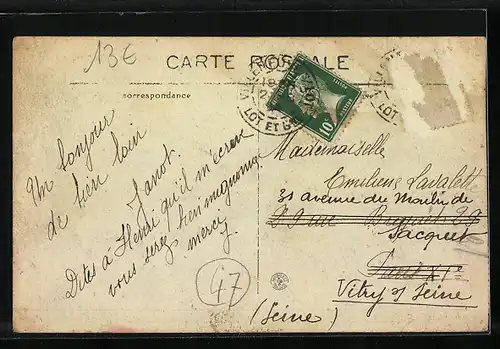 13€
CARTE POSTALE
correspondance
LOT ET
10
LOT
Un bonjour
de bien loin
Janot.
Dites à Henri qu'il m'écrive
vous serez bien mignonne
mercy.
47
Mademoiselle
Emilienne Lavalette
31 avenue du Moulin de
Saquet
Paris XIe
Vitry s/ Seine
(Seine)